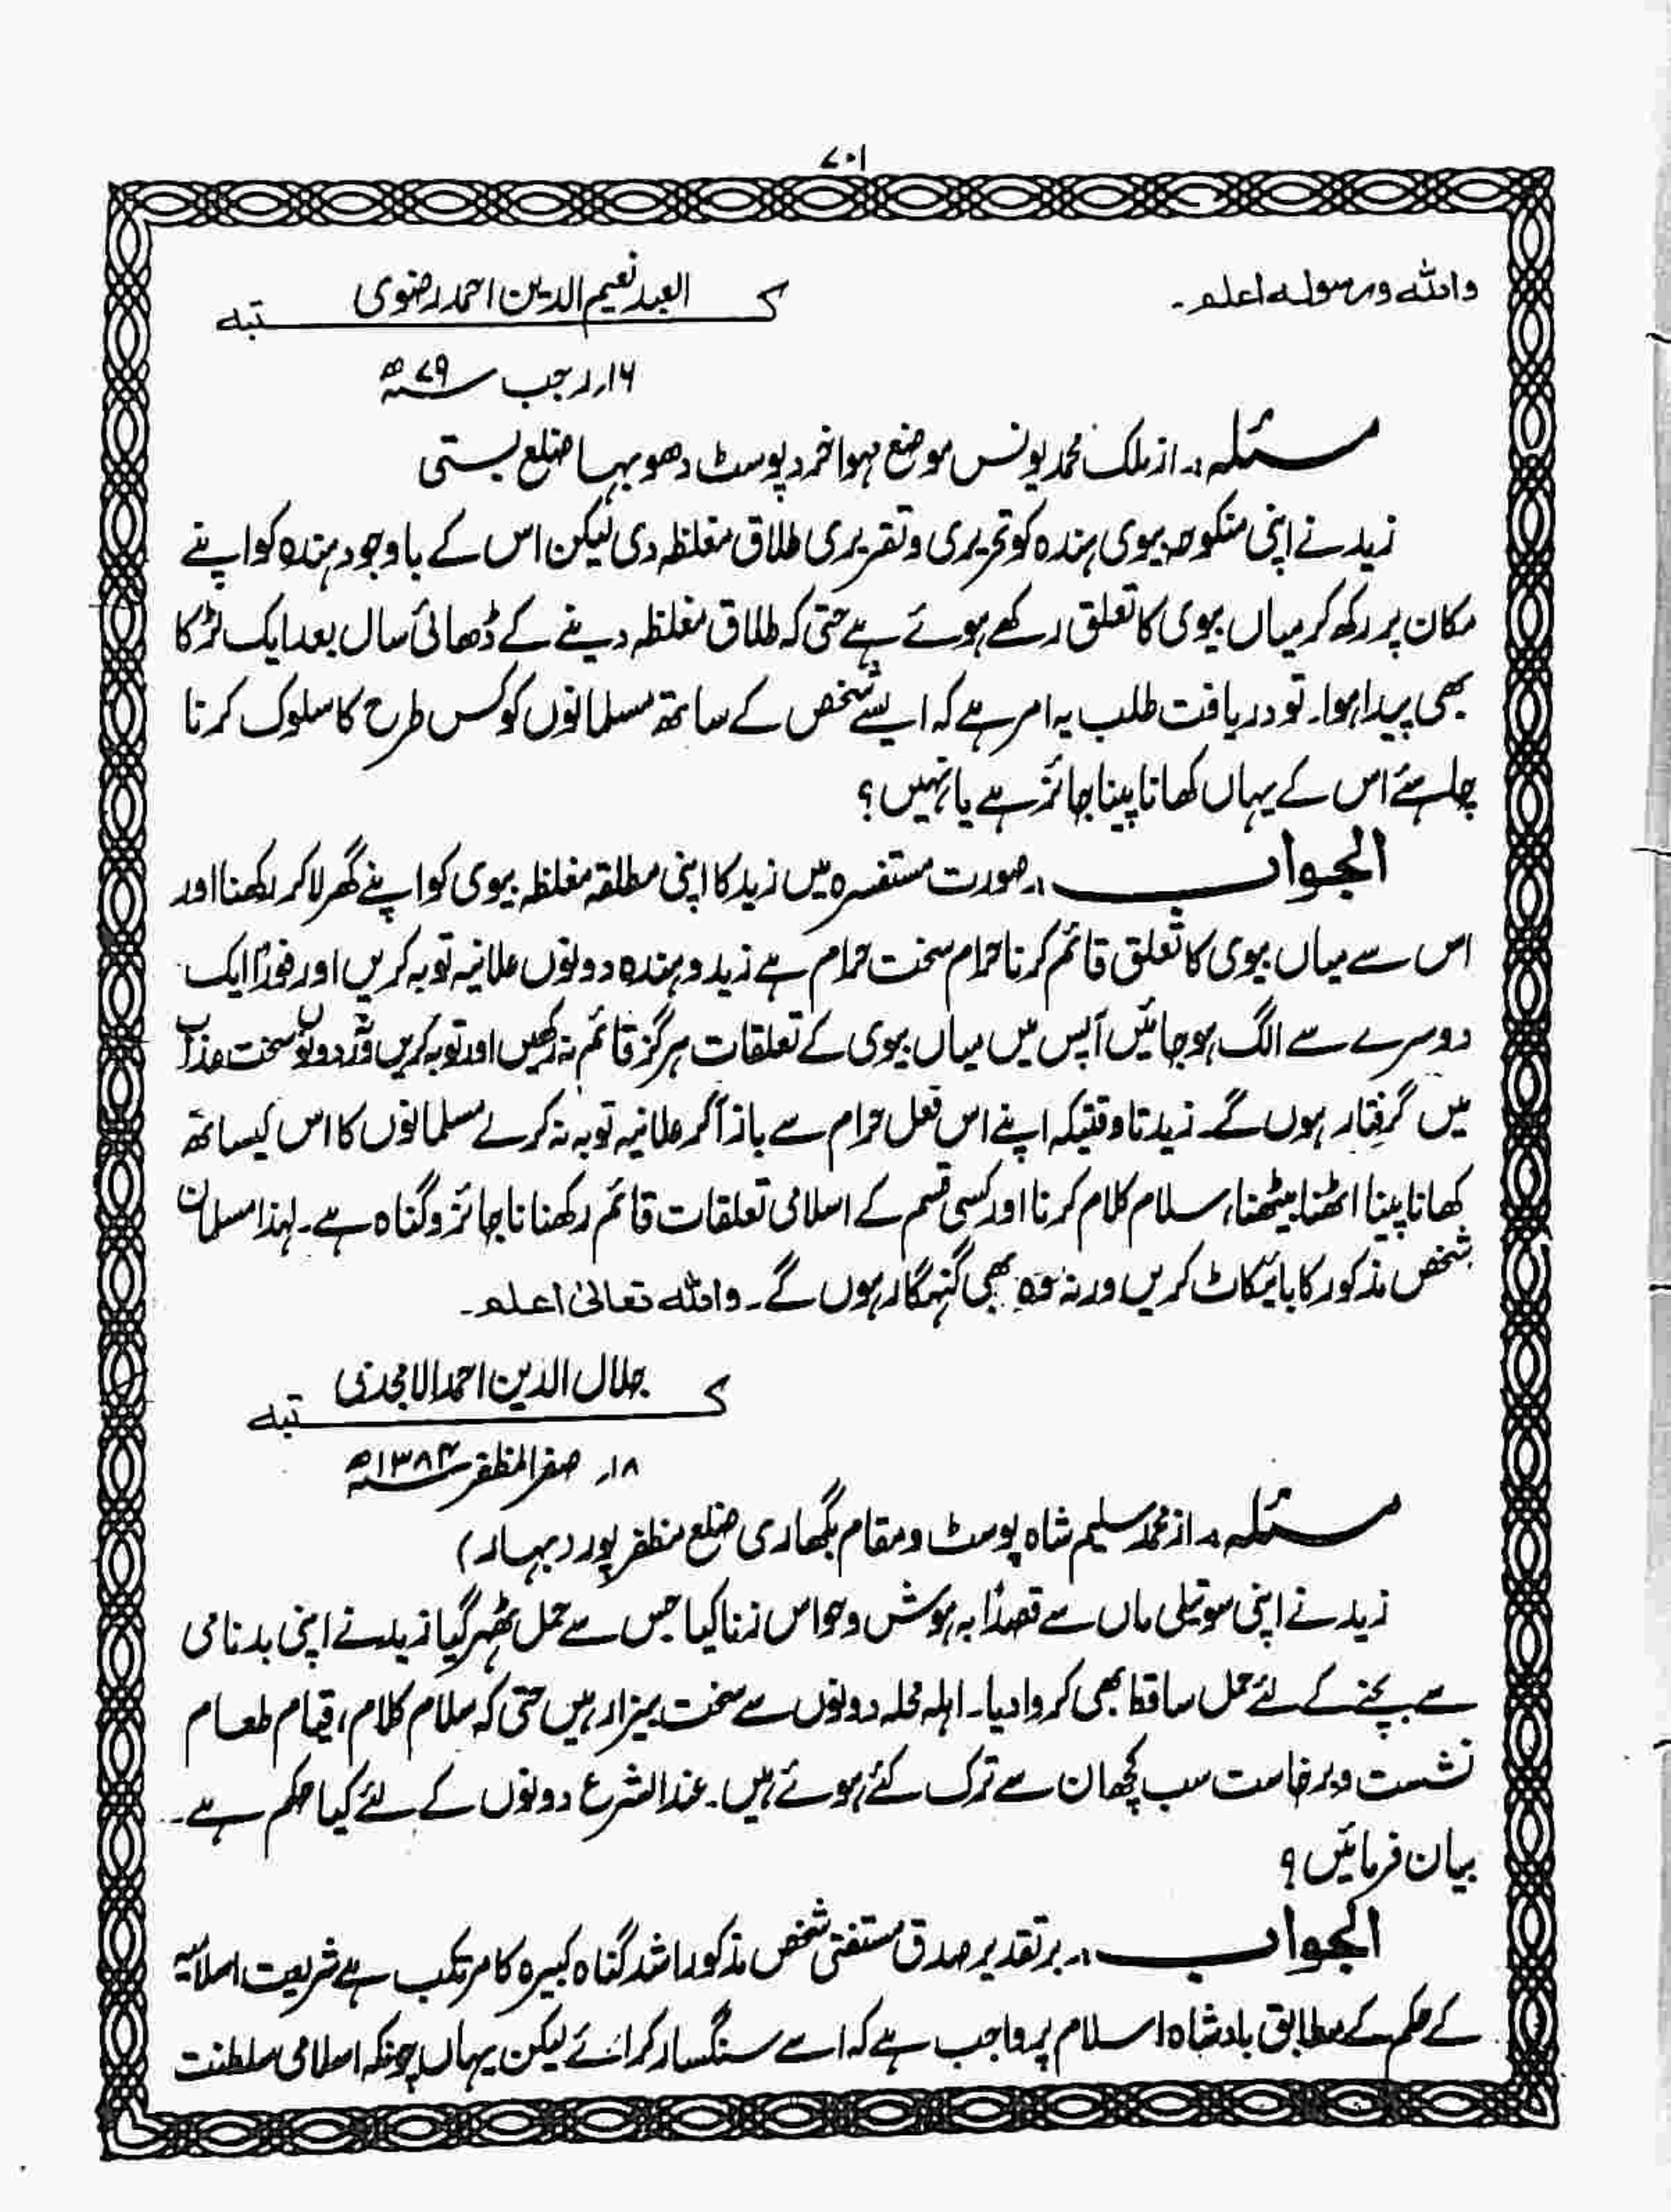 ۷۰۱
واللہ ورسولہ اعلم۔
کتبہ العبد نعیم الدین احمد رضوی
۱۶؍ رجب سنہ ۷۹ھ
مسئلہ:۔ از ملک محمد یونس موضع مہوا خرد پوسٹ دھوبہا ضلع بستی
زید نے اپنی منکوحہ بیوی ہندہ کو تحریری و تقریری طلاق مغلظہ دی لیکن اس کے باوجود ہندہ کو اپنے
مکان پر رکھ کر میاں بیوی کا تعلق رکھے ہوئے ہے حتی کہ طلاق مغلظہ دینے کے ڈھائی سال بعد ایک لڑکا
بھی پیدا ہوا۔ تو دریافت طلب یہ امر ہے کہ ایسے شخص کے ساتھ مسلمانوں کو کس طرح کا سلوک کرنا
چاہئے اس کے یہاں کھانا پینا جائز ہے یا نہیں؟
الجواب:۔ صورت مستفسرہ میں زید کا اپنی مطلقہ مغلظہ بیوی کو اپنے گھر لا کر رکھنا اور
اس سے میاں بیوی کا تعلق قائم کرنا حرام سخت حرام ہے زید و ہندہ دونوں علانیہ توبہ کریں اور فوراً ایک
دوسرے سے الگ ہو جائیں آپس میں میاں بیوی کے تعلقات ہرگز قائم نہ رکھیں اور توبہ کریں ورنہ دونوں سخت عذاب
میں گرفتار ہوں گے۔ زید تاوقتیکہ اپنے اس فعل حرام سے باز آکر علانیہ توبہ نہ کرلے مسلمانوں کا اس کیساتھ
کھانا پینا اٹھنا بیٹھنا، سلام کلام کرنا اور کسی قسم کے اسلامی تعلقات قائم رکھنا ناجائز و گناہ ہے۔ لہذا مسلمان
شخص مذکور کا بائیکاٹ کریں ورنہ وہ بھی گنہگار ہوں گے۔ واللہ تعالیٰ اعلم۔
کتبہ جلال الدین احمد الامجدی
۱۸؍ صفر المظفر سنہ ۱۳۸۴ھ
مسئلہ:۔ از محمد سلیم شاہ پوسٹ و مقام بگھاری ضلع مظفر پور (بہار)
زید نے اپنی سوتیلی ماں سے قصداً بہ ہوش و حواس زنا کیا جس سے حمل ٹھہر گیا زید نے اپنی بدنامی
سے بچنے کے لئے حمل ساقط بھی کروا دیا۔ اہلہ محلہ دونوں سے سخت بیزار ہیں حتی کہ سلام کلام، قیام طعام
نشست و برخاست سب کچھ ان سے ترک کئے ہوئے ہیں۔ عند الشرع دونوں کے لئے کیا حکم ہے۔
بیان فرمائیں؟
الجواب:۔ بر تقدیر صدق مستفتی شخص مذکور اشد گناہ کبیرہ کا مرتکب ہے شریعت اسلامیہ
کے حکم کے مطابق بادشاہ اسلام پر واجب ہے کہ اسے سنگسار کرائے لیکن یہاں چونکہ اسلامی سلطنت